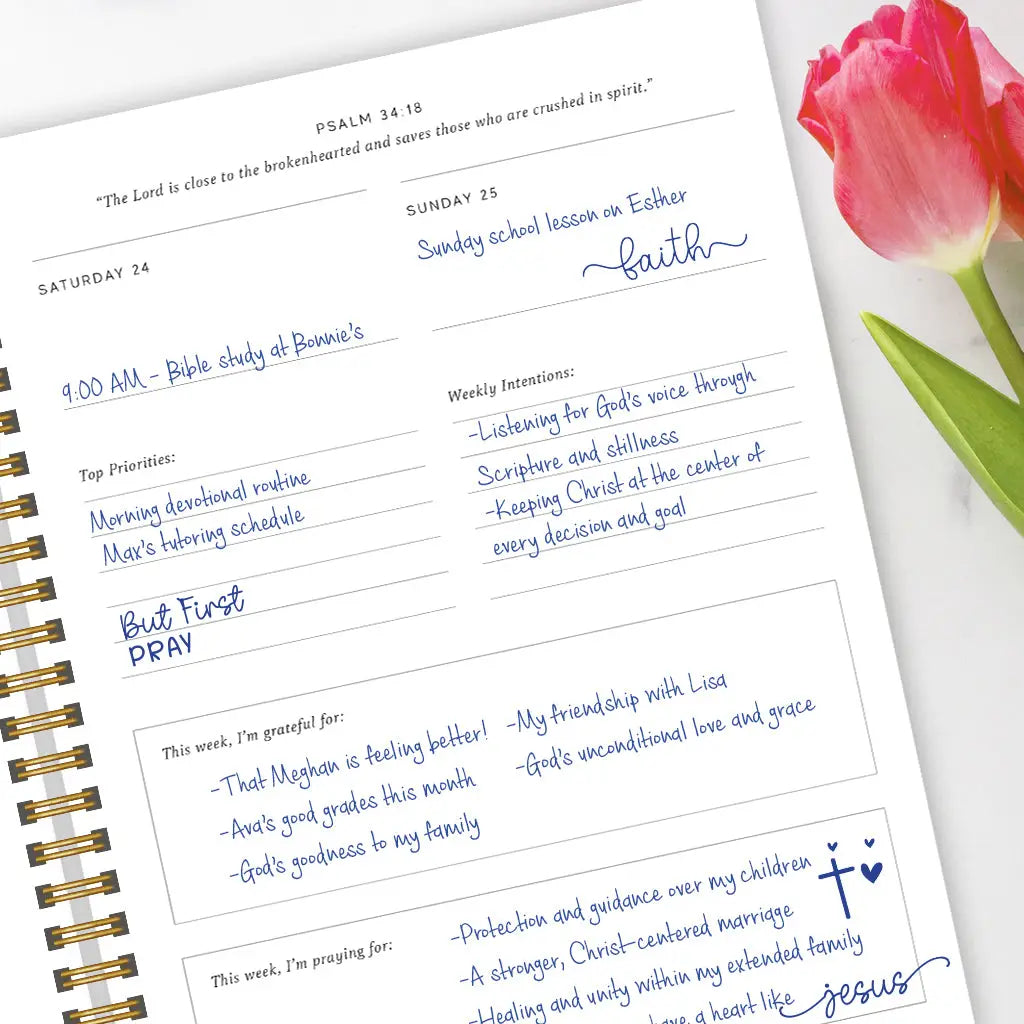 PSALM 34:18
"The Lord is close to the brokenhearted and saves those who are crushed in spirit."
SATURDAY 24
9:00 AM - Bible study at Bonnie's
SUNDAY 25
Sunday school lesson on Esther
faith
Top Priorities:
Morning devotional routine
Max's tutoring schedule
But First
PRAY
Weekly Intentions:
-Listening for God's voice through
Scripture and stillness
-Keeping Christ at the center of
every decision and goal
This week, I'm grateful for:
-That Meghan is feeling better!
-Ava's good grades this month
-God's goodness to my family
-My friendship with Lisa
-God's unconditional love and grace
This week, I'm praying for:
-Protection and guidance over my children
-A stronger, Christ-centered marriage
-Healing and unity within my extended family
a heart like jesus